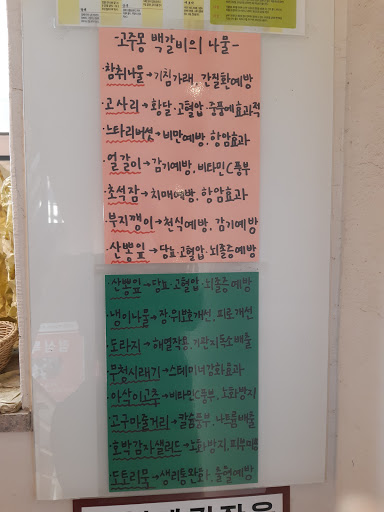 -고주몽 백갈비의 나물-
·참취나물→기침가래, 간질환예방
·고사리→황달·고혈압·중풍에효과적
·느타리버섯→비만예방, 항암효과
·얼갈이→감기예방, 비타민C풍부
·초석잠→치매예방, 항암효과
·부지깽이→천식예방, 감기예방
·산뽕잎→당뇨·고혈압·뇌졸중예방
·산뽕잎→당뇨·고혈압·뇌졸중예방
·냉이나물→장·위보호개선, 피로개선
·도라지→해열작용, 기관지독소배출
·무청시래기→스테미너강화효과
·아삭이고추→비타민C풍부, 노화방지
·고구마줄거리→칼슘풍부, 나트륨배출
·호박감자샐러드→노화방지, 피부미용
·도토리묵→생리통완화,